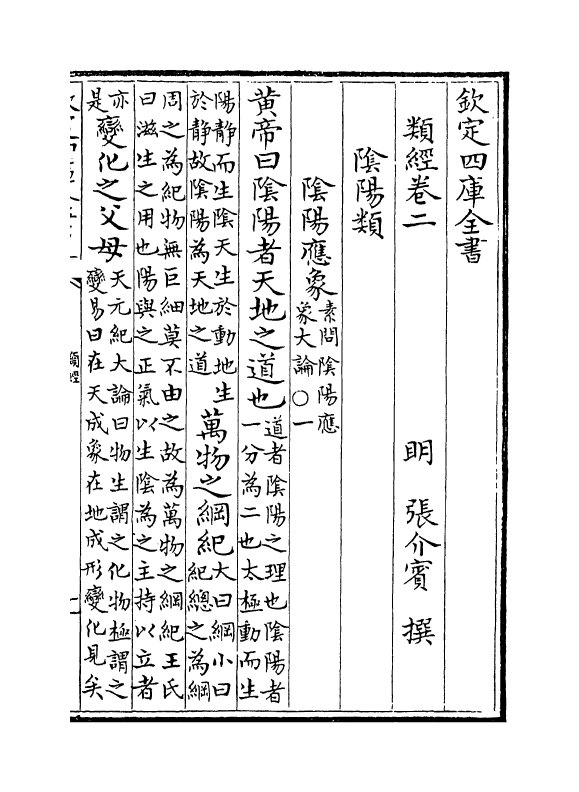 欽定四庫全書
類經卷二 明 張介賓 撰
陰陽類
陰陽應象素問陰陽應象大論〇一
黃帝曰陰陽者天地之道也道者陰陽之理也陰陽者一分為二也太極動而生
陽靜而生陰天生於動地生於靜故陰陽為天地之道萬物之綱紀大曰綱小曰紀總之為綱
周之為紀物無巨細莫不由之故為萬物之綱紀王氏曰滋生之用也陽與之正氣以生陰為之主持以立者
亦是變化之父母天元紀大論曰物生謂之化物極謂之變易曰在天成象在地成形變化見矣
類經